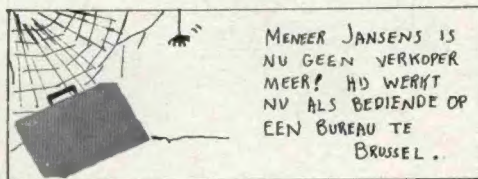 MENEER JANSENS IS
NU GEEN VERKOPER
MEER! HIJ WERKT
NU ALS BEDIENDE OP
EEN BUREAU TE
BRUSSEL.